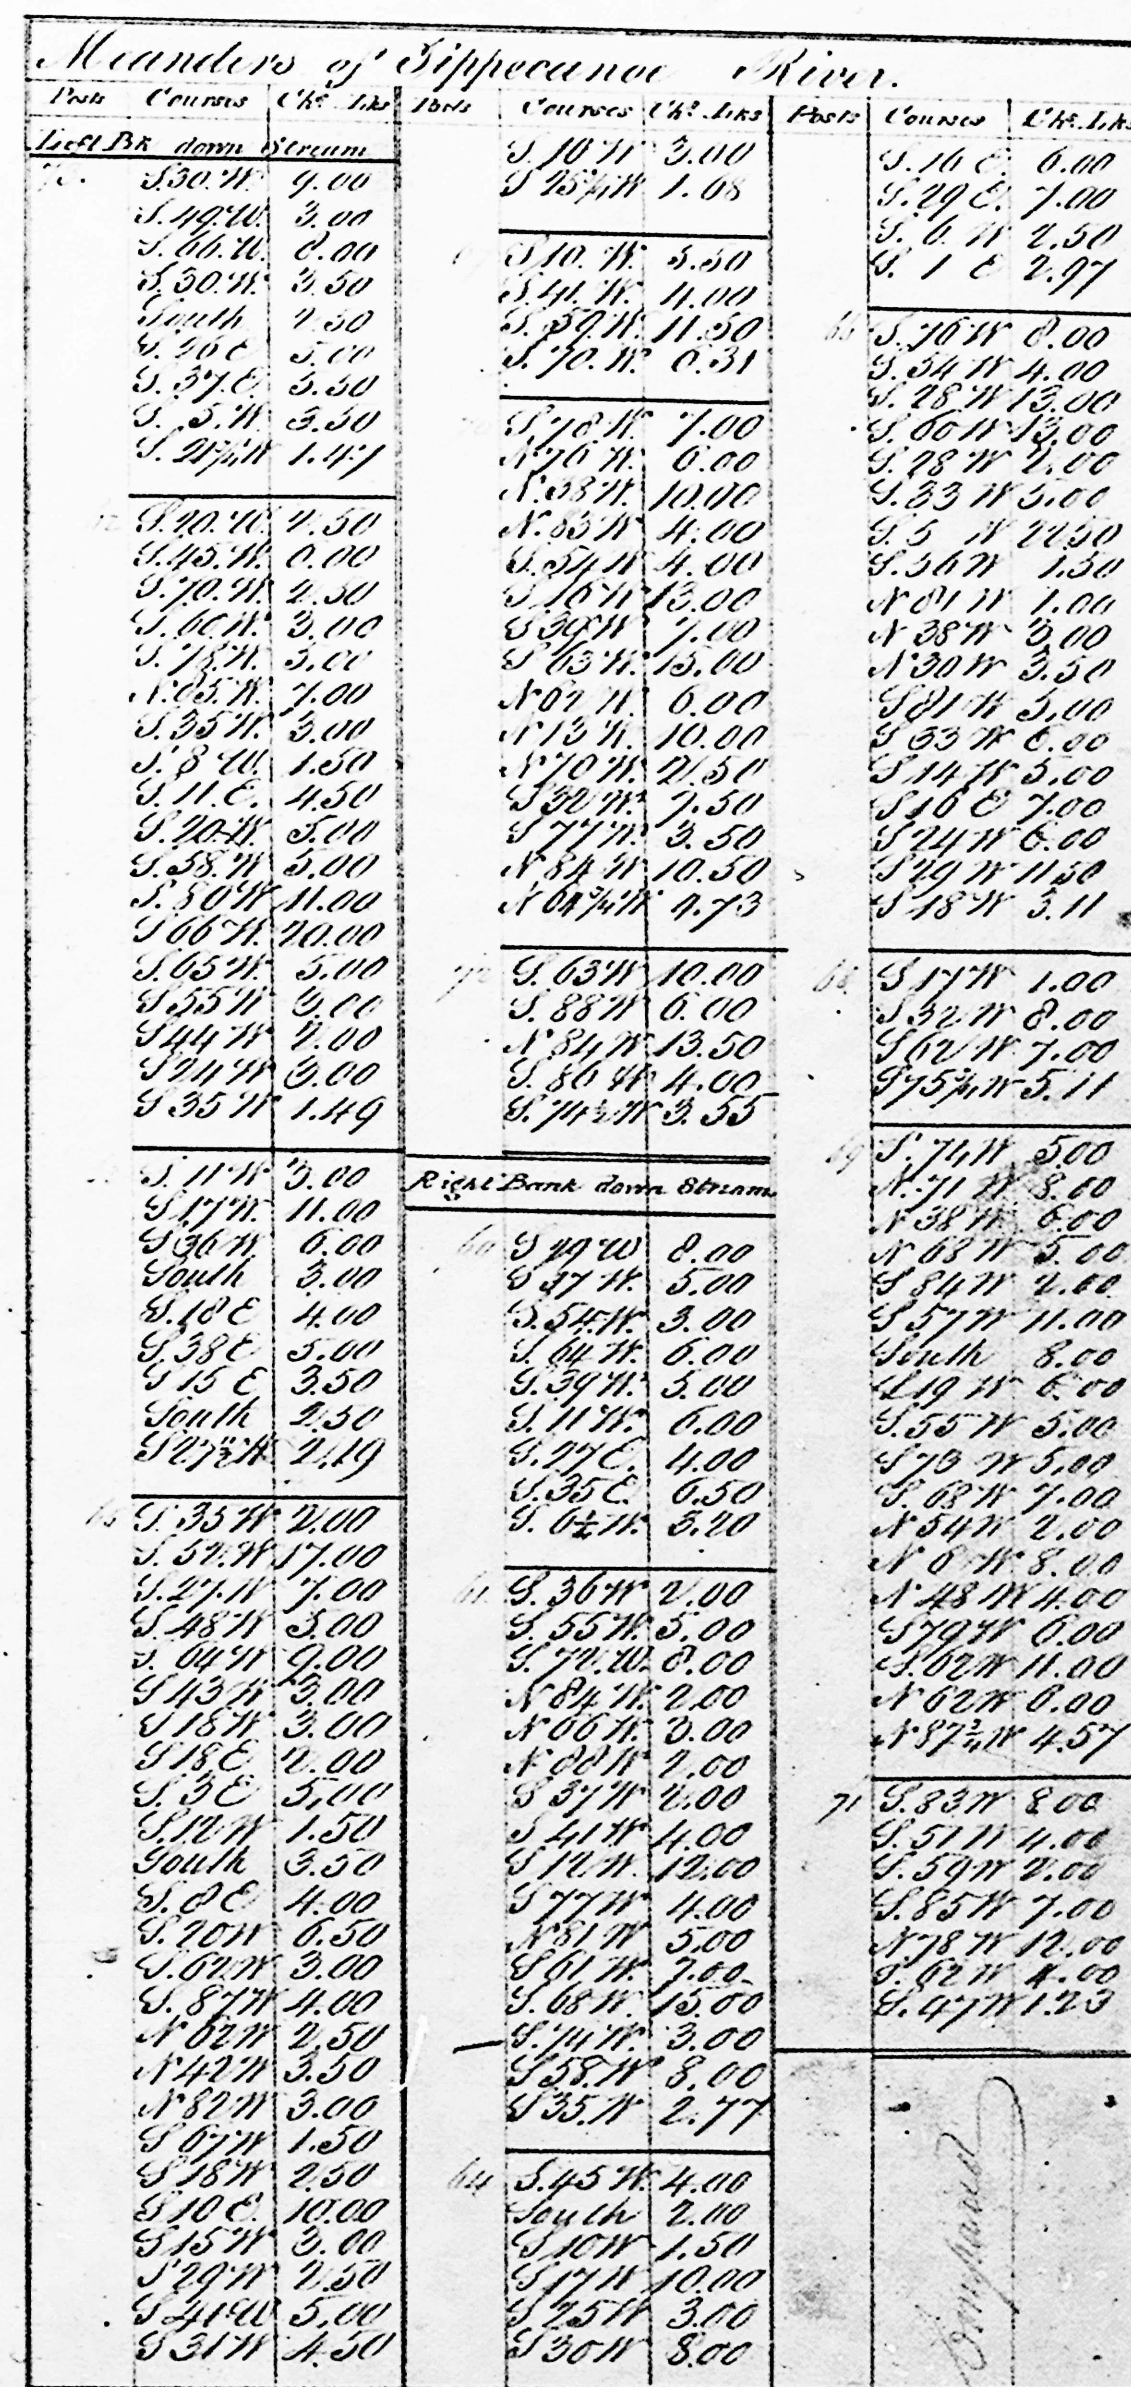 Meanders of Tippecanoe River.
Posts Courses Chs. Lks
Left Bk down Stream
S.30.W. 9.00
S.49.W. 3.00
S.66.W. 8.00
S.30.W. 3.50
South 2.50
S.26 E 5.00
S.37.E. 3.50
S. 5.W. 3.50
S. 21¾W 1.47
S.20.W. 2.50
S.45.W. 6.00
S.70.W. 2.50
S.60.W. 3.00
S.78.W. 3.00
N.85.W. 7.00
S.35 W. 3.00
S. 8 W. 1.50
S.11.E. 4.50
S.20.W. 5.00
S.58.W. 5.00
S. 80 W 11.00
S 66 W. 20.00
S.65 W. 5.00
S 55 W 3.00
S 44 W 2.00
S 24 W 3.00
S 35 W 1.49
S. 11 W 3.00
S 17 W. 11.00
S 36 W. 6.00
South 3.00
S.18 E 4.00
S.38 E 5.00
S 15 E 3.50
South 2.50
S 27½ W 2.19
S. 35 W 2.00
S. 52.W 17.00
S.27.W 7.00
S.48 W 3.00
S. 64 W 9.00
S 43 W 3.00
S 18 W 3.00
S 18 E 2.00
S. 3 E 5.00
S.12 W 1.50
South 3.50
S. 8 E 4.00
S. 20 W 6.50
S. 62 W 3.00
S. 87 W 4.00
N 62 W 2.50
N 42 W 3.50
N 82 W 3.00
S 67 W 1.50
S 18 W 2.50
S 10 E. 10.00
S 15 W 3.00
S 29 W 2.50
S 41 W 5.00
S 31 W 4.50
Posts Courses Chs. Lks
S. 10 W 3.00
S 25¾W 1.68
S 10. W. 5.50
S.41. W. 4.00
S. 59.W. 11.50
S. 70. W. 6.31
S 78.W. 7.00
N 76 W. 6.00
N.58 W. 10.00
N. 83 W 4.00
S. 54 W 4.00
S 16 W 13.00
S 39 W 7.00
S 63 W. 15.00
N 62 W. 6.00
N 13 W. 10.00
N 70 W. 21.50
S 32 W. 7.50
S 77 W. 3.50
N 84 W 10.50
N 64¾W 4.73
72 S. 63 W 10.00
S. 88 W 6.00
N 84 W 13.50
S. 80 W 4.00
S. 74½ W 3.55
Right Bank down Stream
60 S 29 W 8.00
S 37 W. 5.00
S. 54.W. 3.00
S. 64 W. 6.00
S. 39 W. 5.00
S. 11 W. 6.00
S. 27 E. 4.00
S. 35 E. 6.50
S. 6½ W. 3.20
61 S. 36 W 2.00
S. 55 W. 5.00
S. 72.W. 8.00
N 84 W. 2.00
N 66 W. 3.00
N 88 W 2.00
S 37 W 2.00
S 41 W 4.00
S 12 W. 12.00
S 77 W 4.00
N 81 W 5.00
S 61 W. 7.00
S. 68 W. 15.00
S. 74 W. 3.00
S 58. W 8.00
S 35. W 2.77
64 S.45 W. 4.00
South 2.00
S 10 W 1.50
S 17 W 10.00
S 25 W 3.00
S 30 W 8.00
Posts Courses Chs. Lks
S. 16 E. 6.00
S. 29 E. 7.00
S. 6. W 2.50
S. 1 E 2.97
65 S. 76 W 8.00
S. 54 W 4.00
S. 28 W 13.00
S. 60 W 13.00
S. 28 W 2.00
S. 33 W 5.00
S. 5 W 22.50
S. 56 W 1.50
N 81 W 1.00
N 38 W 3.00
N 30 W 3.50
S 81 W 5.00
S 33 W 6.00
S 14 W 5.00
S 16 E 7.00
S 24 W 6.00
S 29 W 11.50
S 18 W 3.11
68 S 17 W 1.00
S 32 W 8.00
S 62 W 7.00
S 75¾W 5.11
69 S. 74 W 5.00
N. 71 W 8.00
N 38 W 6.00
N 68 W 5.00
S 84 W 2.00
S 57 W 11.00
South 8.00
S 19 W 6.00
S. 55 W 5.00
S 73 W 5.00
S. 68 W 7.00
N 54 W 2.00
N 8 W 8.00
N 48 W 4.00
S 79 W 6.00
S. 62 W 11.00
N 62 W 6.00
N 87¾ W 4.57
71 S. 83 W 8.00
S. 51 W 4.00
S. 59 W 2.00
S. 85 W 7.00
N. 78 W 12.00
S. 62 W 4.00
S. 47 W 1.23
Compared